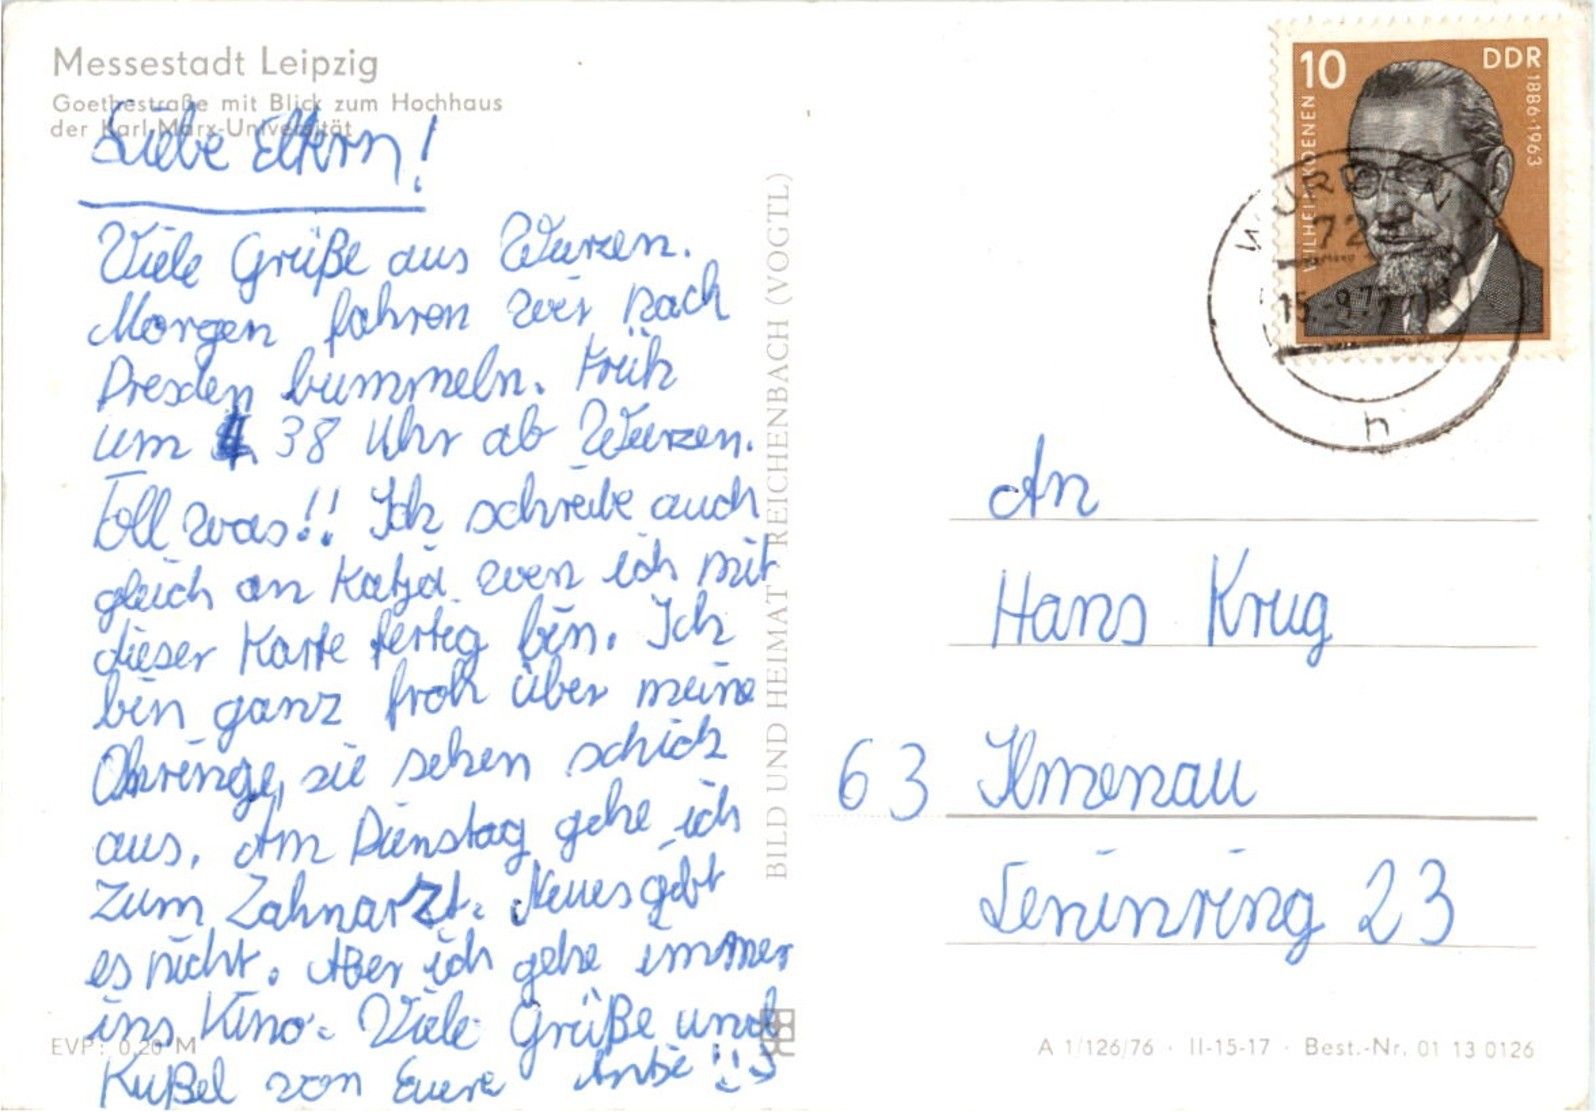 Messestadt Leipzig
Goethestraße mit Blick zum Hochhaus
der Karl-Marx-Universität
Liebe Eltern!
Viele Grüße aus Wurzen.
Morgen fahren wir nach
Dresden bummeln. Früh
um 4. 38 Uhr ab Wurzen.
Toll was!! Ich schreibe auch
gleich an Katja wen ich mit
dieser Karte fertig bin. Ich
bin ganz froh über meine
Ohrringe, sie sehen schick
aus. Am Dienstag gehe ich
zum Zahnarzt. Neues gibt
es nicht. Aber ich gehe immer
ins Kino. Viele Grüße und
Kußel von Eure Antje!!
EVP: 0,20 M
BILD UND HEIMAT REICHENBACH (VOGTL)
10 DDR
WILHELM KOENEN
1886·1963
WURZEN
72
15.-9.77
h
An
Hans Krug
63 Ilmenau
Leninring 23
A 1/126/76 · II-15-17 · Best.-Nr. 01 13 0126